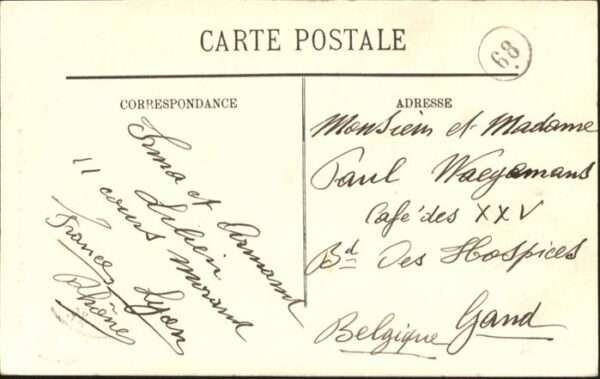 CARTE POSTALE
68
CORRESPONDANCE
Irma et Armand
Lilien
11 cours Morand
Lyon
France
Rhône
ADRESSE
Monsieur et Madame
Paul Waegemans
Café des XXV
Bd Des Hospices
Gand
Belgique